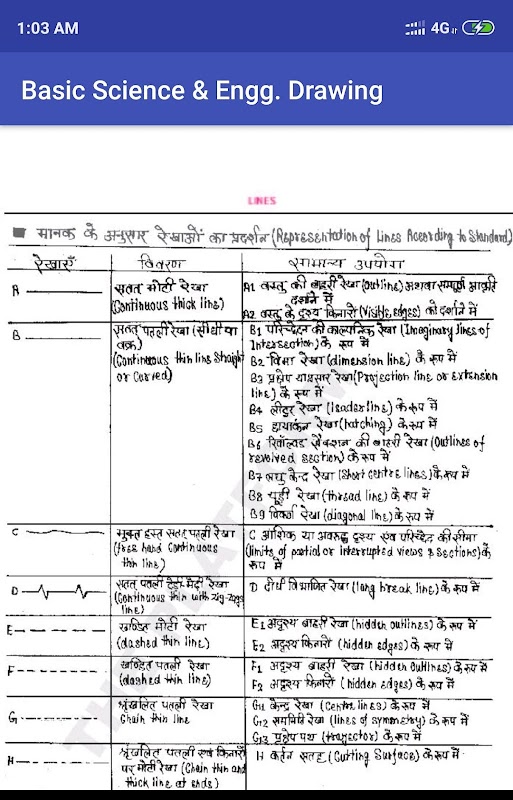 1:03 AM
4G
Basic Science & Engg. Drawing
LINES
■ मानक के अनुसार रेखाओं का प्रदर्शन (Representation of Lines According to Standard)
रेखाएँ
विवरण
सामान्य उपयोग
A
सतत् मोटी रेखा
(Continuous thick line)
A1 वस्तु की बाहरी रेखा (Outline) अथवा सम्पूर्ण आकृति
दर्शाने में
A2 वस्तु के दृश्य किनारों (Visible edges) को दर्शाने में
B
सतत् पतली रेखा (सीधी या
वक्र)
(Continuous thin line straight
or Curved)
B1 परिच्छेदन की काल्पनिक रेखा (Imaginary lines of
Intersection) के रूप में
B2 विमा रेखा (dimension line) के रूप में
B3 प्रक्षेप या प्रसार रेखा (Projection line or Extension
line) के रूप में
B4 लीडर रेखा (leader line) के रूप में
B5 छायांकन रेखा (hatching) के रूप में
B6 रिवॉल्वड सैक्शन की बाहरी रेखा (Outlines of
revolved section) के रूप में
B7 लघु केन्द्र रेखा (Short centre lines) के रूप में
B8 चूड़ी रेखा (thread line) के रूप में
B9 विकर्ण रेखा (diagonal line) के रूप में
C
मुक्त हस्त सतत् पतली रेखा
(free hand Continuous
thin line)
C आंशिक या अवरुद्ध दृश्य एवं परिच्छेद की सीमा
(limits of partial or interrupted views & sections) के
रूप में
D
सतत् पतली टेढ़ी-मेढ़ी रेखा
(Continuous thin with zig-zags
line)
D दीर्घ विभाजित रेखा (long break line) के रूप में
E
खण्डित मोटी रेखा
(dashed thin line)
E1 अदृश्य बाहरी रेखा (hidden outlines) के रूप में
E2 अदृश्य किनारों (hidden edges) के रूप में
F
खण्डित पतली रेखा
(dashed thin line)
F1 अदृश्य बाहरी रेखा (hidden Outlines) के रूप में
F2 अदृश्य किनारों (hidden edges) के रूप में
G
श्रृंखलित पतली रेखा
Chain thin line
G1 केन्द्र रेखा (Centre lines) के रूप में
G2 सममिति रेखा (lines of symmetry) के रूप में
G3 प्रक्षेप पथ (trajector) के रूप में
H
श्रृंखलित पतली एवं किनारों
पर मोटी रेखा (Chain thin and
thick line at ends)
H कर्तन सतह (Cutting Surface) के रूप में